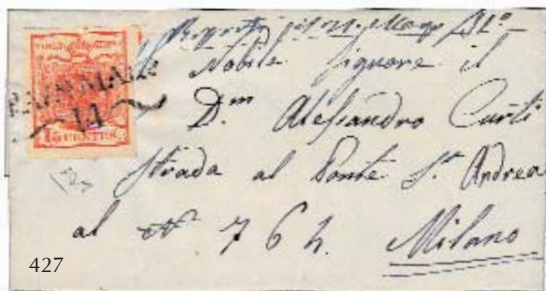 Nobile Signore il
D.m Alessandro Curti
Strada al Ponte S.t Andrea
al N 764. Milano
15 CENTES.
14
427